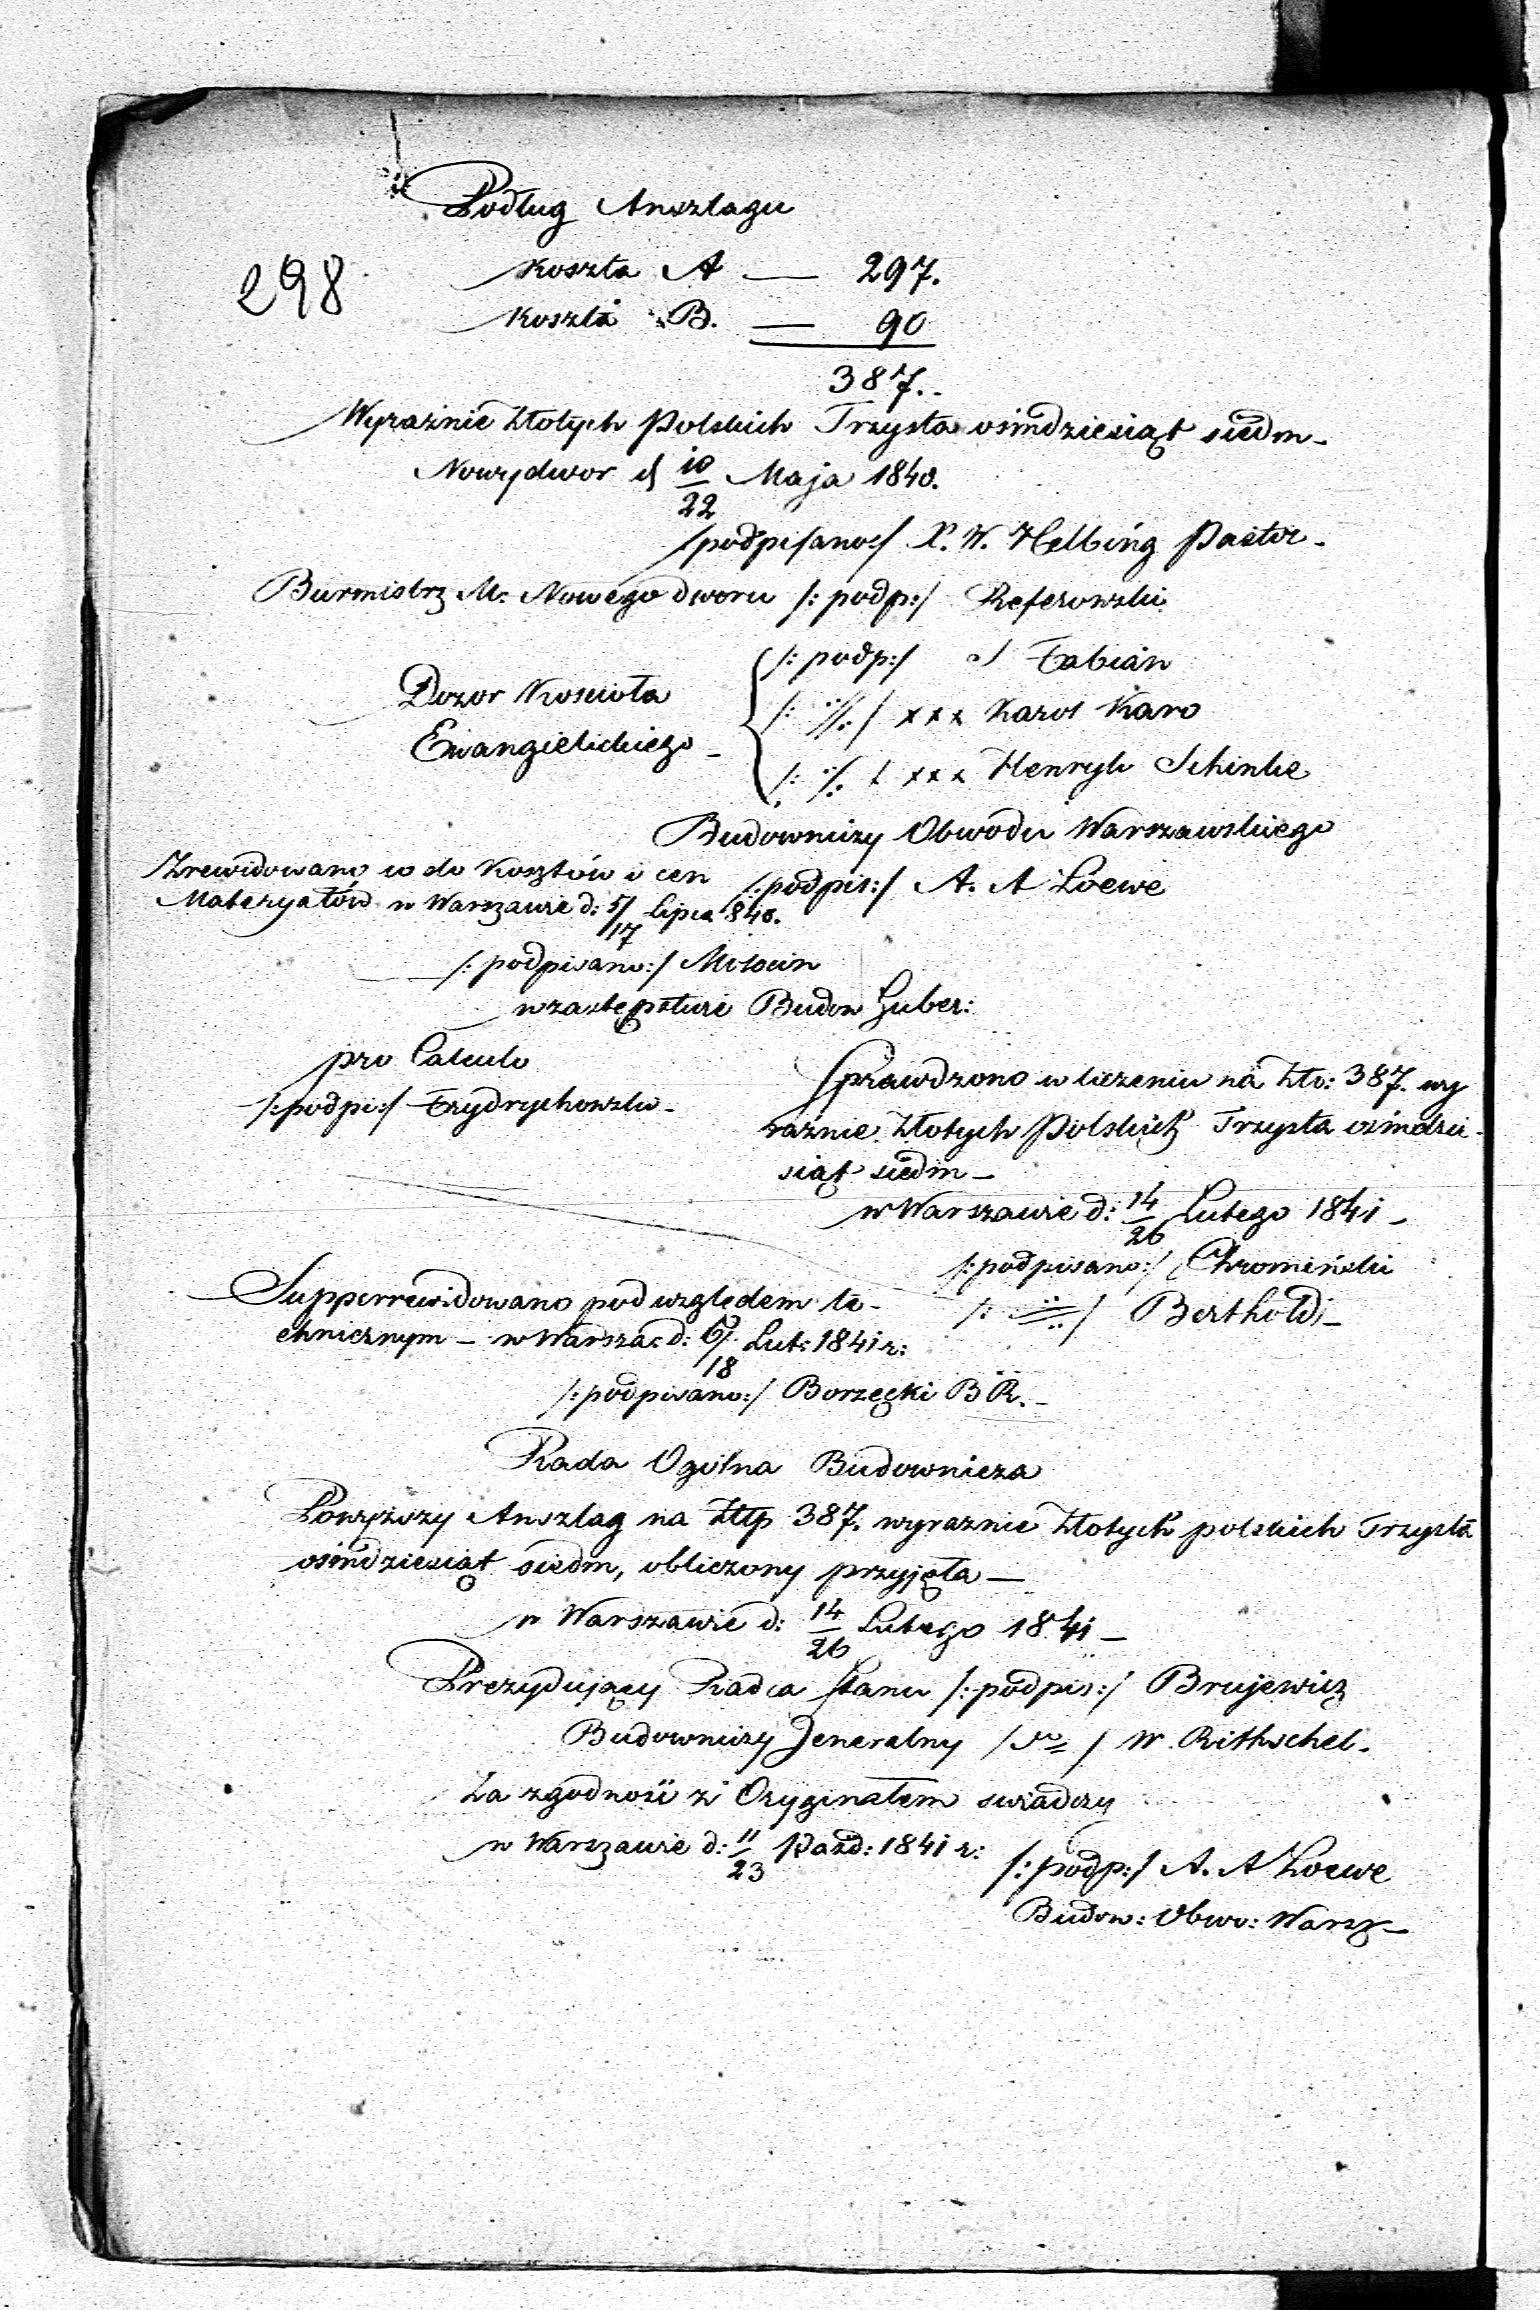 Podług Anszlagu
298
Koszta A — 297.
Koszta B. — 90
387.-
Wyraźnie Złotych Polskich Trzysta ośmdziesiąt siedm -
Nowydwor d 10/22 Maja 1840.
/podpisano:/ X. W. Helbing Pastor -
Burmistrz M. Nowego dworu /: podp:/
Dozor Kościoła
Ewangielickiego -
/: podp:/ Fabian
/: ·/. / xxx Karol Karo
/: ·/. / xxx Henryk Schinke
Budowniczy Obwodu Warszawskiego
/:podpis:/ A. A Loewe
Zrewidowano co do Kosztów i cen
Materyałów w Warszawie d: 5/17 Lipca 840.
/: podpisano:/
w zastępstwie Budow Guber:
pro Calculo
/:podpi:/ Frydrychowski -
Sprawdzono w liczeniu na Złt: 387. wy
raźnie Złotych Polskich Trzysta ośmdzie-
siąt siedm -
w Warszawie d: 14/26 Lutego 1841 -
/: podpisano:/ Chromiński
/: ·/. / Berthold -
Supperrewidowano pod względem te-
chnicznym - w Warsza: d: 6/18 Lut: 1841 r:
/: podpisano:/ Borzęcki B R. -
Rada Ogólna Budownicza
Powyższy Anszlag na Złtp 387. wyraznie Złotych polskich Trzysta
ośmdziesiąt siedm, obliczony przyjęła —
w Warszawie d: 14/26 Lutego 1841 -
Prezydujący Radca Stanu /: podpis:/ Brujewicz
Budowniczy Jeneralny / / W. Ritschel.
Za zgodność z Oryginałem swiadczy
w Warszawie d: 11/23 Paźd: 1841 r:
/: podp:/ A. A Loewe
Budow: Obwo: Warsz -